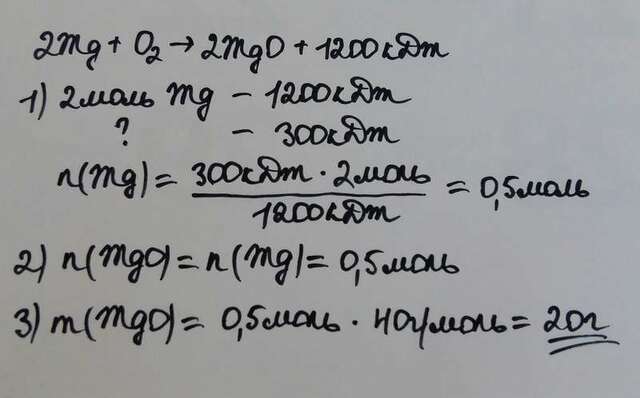 2Mg + O₂ → 2MgO + 1200кДж
1) 2моль Mg – 1200кДж
? – 300кДж
n(Mg) = 300кДж · 2моль / 1200кДж = 0,5моль
2) n(MgO) = n(Mg) = 0,5моль
3) m(MgO) = 0,5моль · 40г/моль = 20г